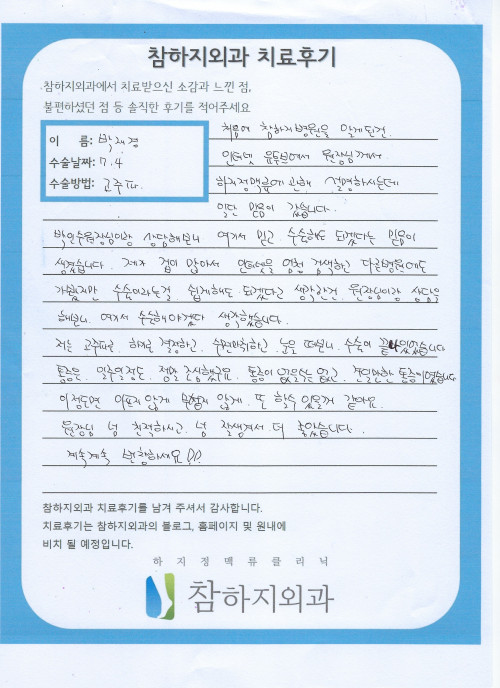 참하지외과 치료후기
참하지외과에서 치료받으신 소감과 느낀 점,
불편하셨던 점 등 솔직한 후기를 적어주세요
이 름: 박재경
수술날짜: 7.4
수술방법: 고주파.
처음에 참하지병원을 알게된건
인터넷 유튜브에서 원장님께서
하지정맥류에 관해 설명하시는데
일단 믿음이 갔습니다.
박인수원장님이랑 상담해보니 여기서 믿고 수술해도 되겠다는 믿음이
생겼습니다. 제가 겁이 많아서 인터넷을 엄청 검색하고 다른병원에도
가봤지만 수술이라는걸 쉽게해도 되겠다고 생각한건 원장님이랑 상담을
해보니. 여기서 수술해야겠다 생각했습니다.
저는 고주파로 하기로 결정하고. 수면마취하고 눈을 떠보니. 수술이 끝나있었습니다
통증은 일주일정도. 정말 조심했구요. 통증이 없을수는 없고. 견딜만한 통증이였습니다
이정도면 아프지 않게 무섭지 않게. 또 할수 있을꺼 같아요.
원장님 넘 친절하시고. 넘 잘생겨서 더 좋았습니다.
계속계속 번창하세요!!
참하지외과 치료후기를 남겨 주셔서 감사합니다.
치료후기는 참하지외과의 블로그, 홈페이지 및 원내에
비치 될 예정입니다.
하지정맥류클리닉
참하지외과